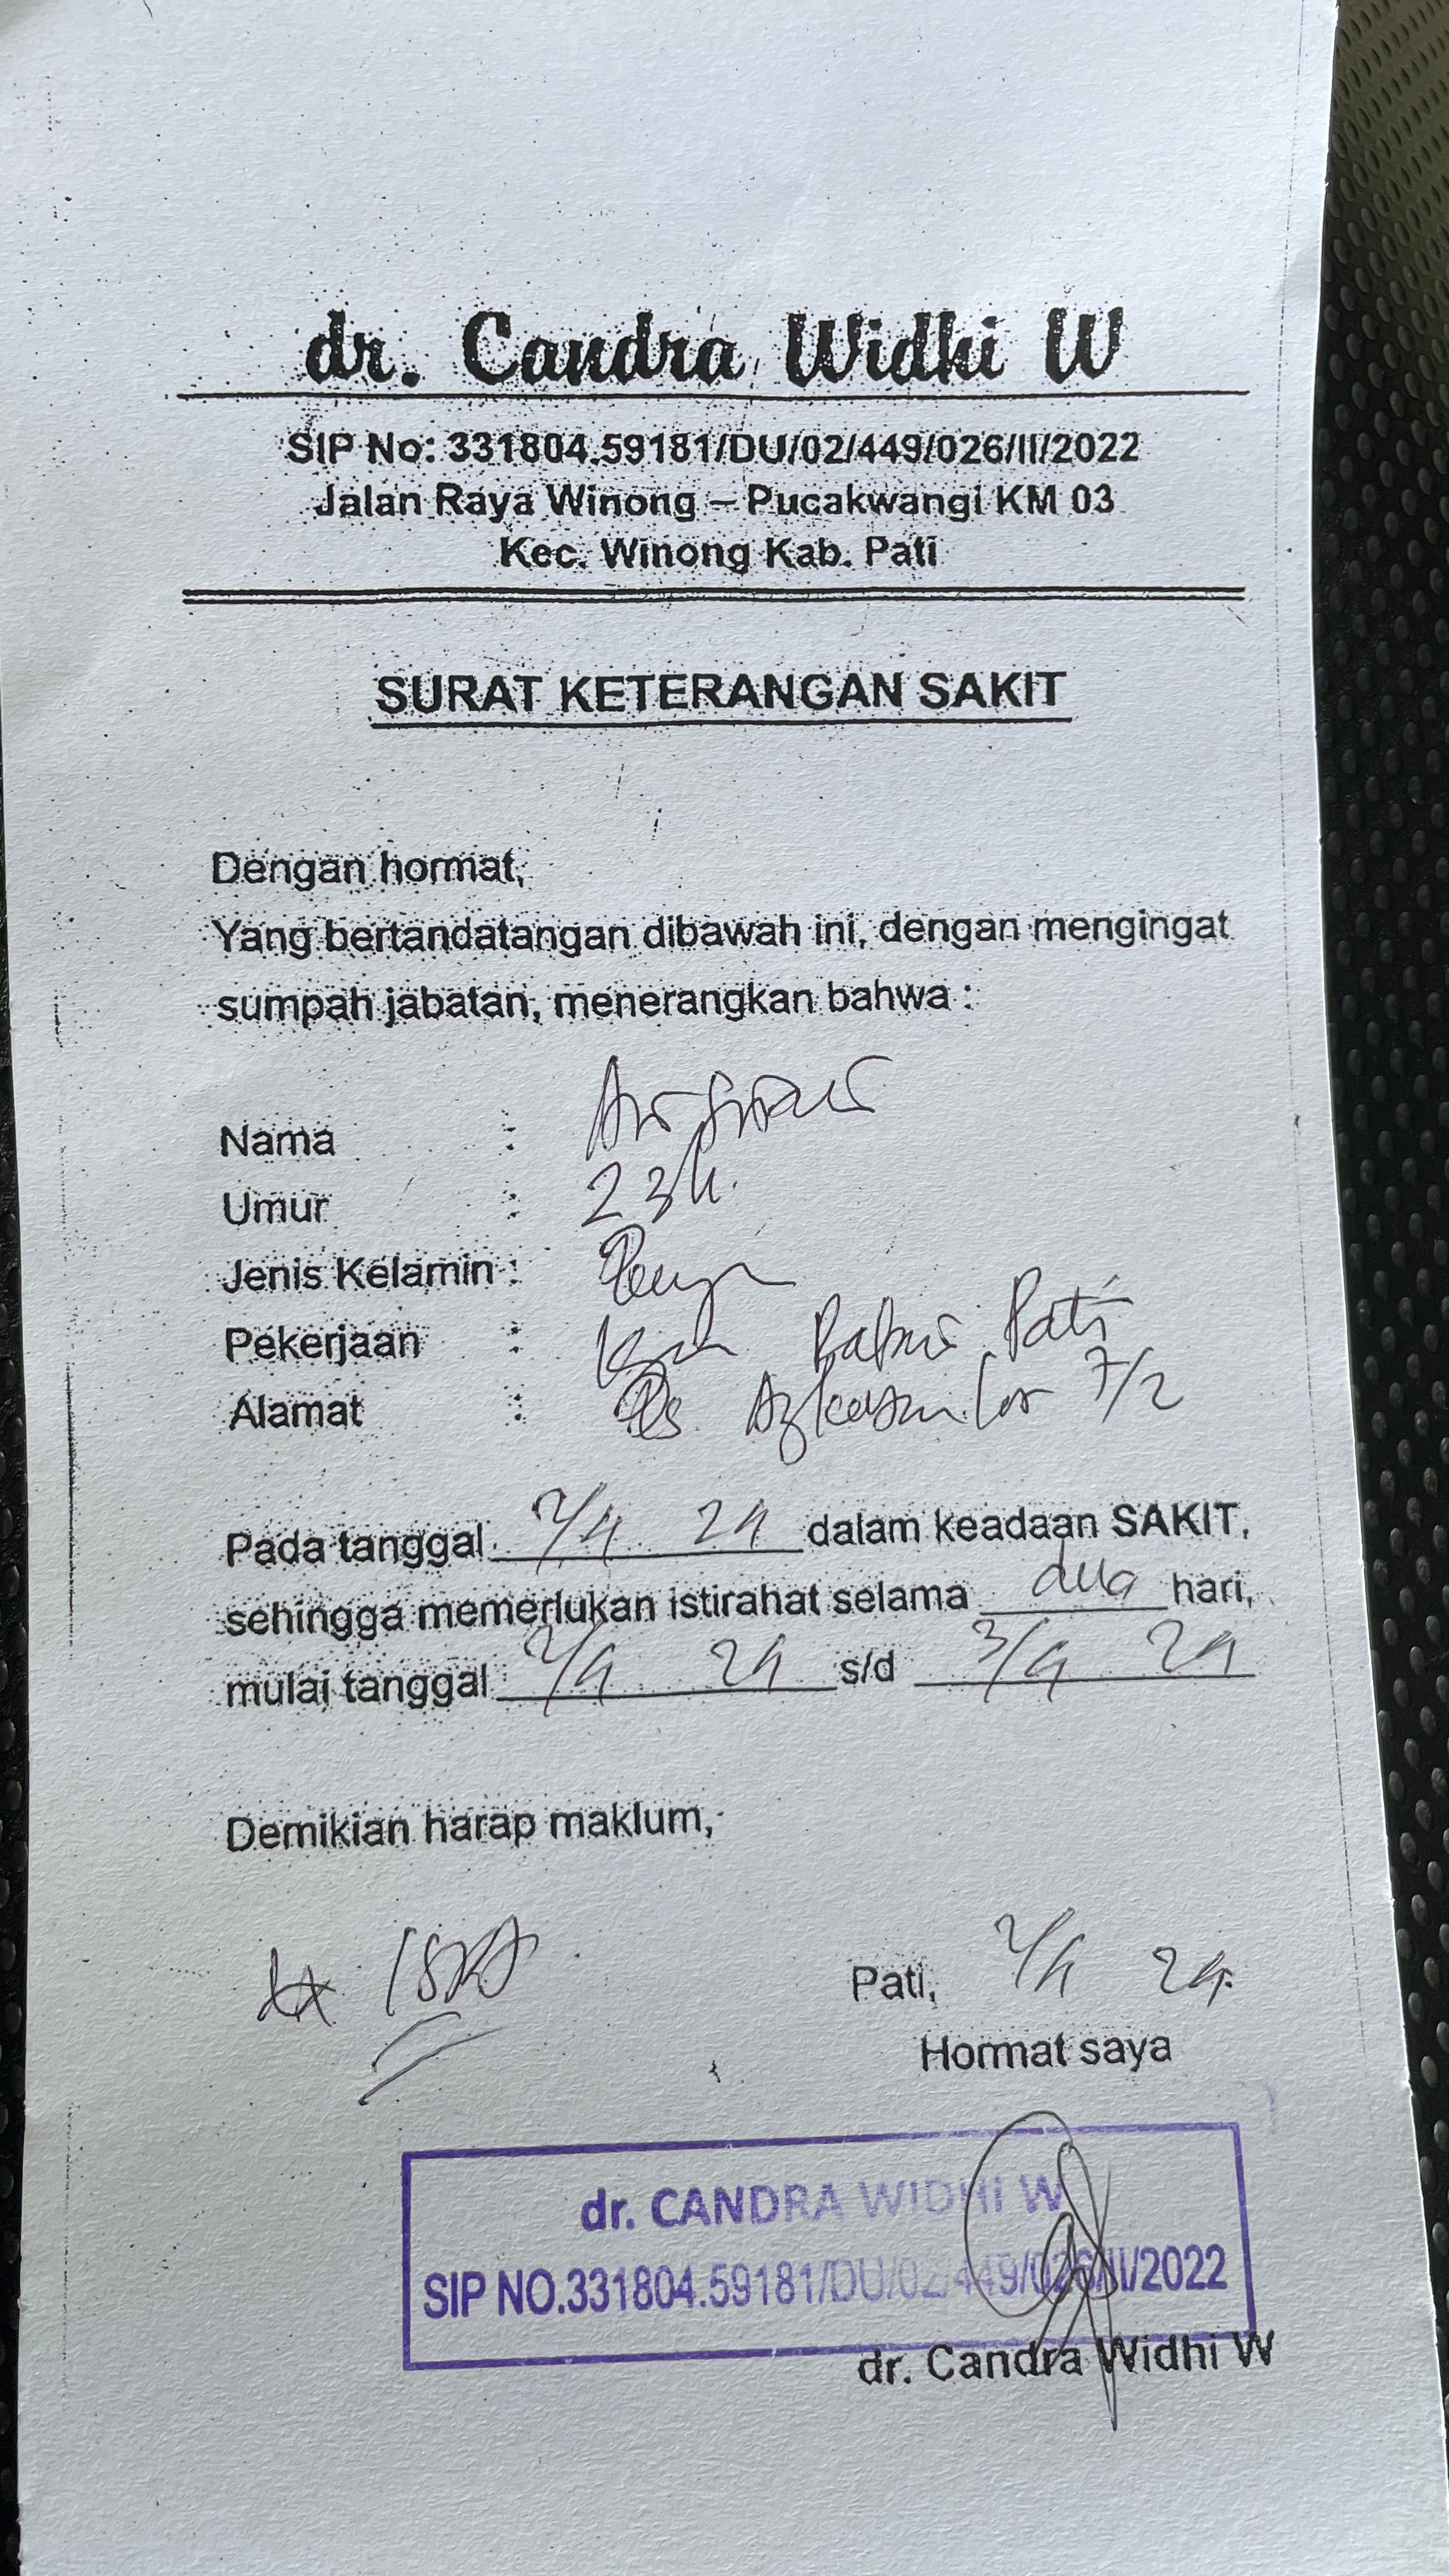 dr. Candra Widhi W
SIP No: 331804.59181/DU/02/449/026/II/2022
Jalan Raya Winong – Pucakwangi KM 03
Kec. Winong Kab. Pati
SURAT KETERANGAN SAKIT
Dengan hormat,
Yang bertandatangan dibawah ini, dengan mengingat
sumpah jabatan, menerangkan bahwa :
Nama :
Umur : 23
Jenis Kelamin :
Pekerjaan : Pati
Alamat : Ds. 7/2
Pada tanggal 2/4 24 dalam keadaan SAKIT,
sehingga memerlukan istirahat selama dua hari,
mulai tanggal 2/4 24 s/d 3/4 24
Demikian harap maklum,
Pati, 2/4 24
Hormat saya
dr. CANDRA WIDHI W
SIP NO.331804.59181/DU/02/449/026/II/2022
dr. Candra Widhi W